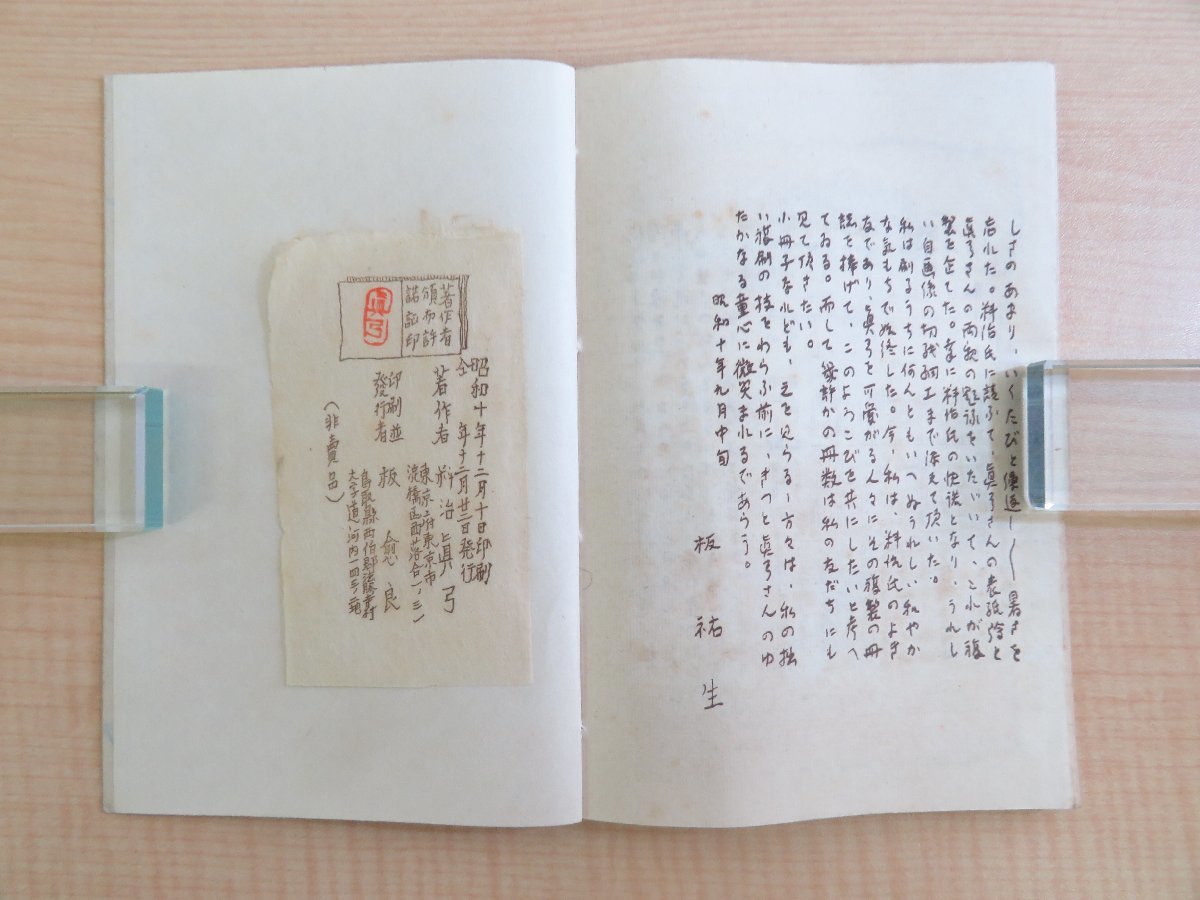 しさのあまり、いくたびと繰返し――暑さを
忘れた。料治氏に請ふて、眞弓さんの表紙繪と
眞弓さんの両親の題詠をいたゞいて、これが複
製を企てた。幸に料治氏の快諾となり、うれし
い自画像の切抜細工まで添えて頂いた。
私は刷るうちに何んともいへぬうれしい和やか
な気もちで始終した。今、私は、料治氏のよき
友であり、眞弓を可愛がる人々にその複製の冊
誌を捧げて、このよろこびを共にしたいと考へ
てゐる。而して幾許かの冊数は私の友だちにも
見て頂きたい。
小冊子なれども、之を見らるゝ方々は、私の拙
い複刷の技をわらふ前に、きつと眞弓さんのゆ
たかなる童心に微笑まれるであらう。
昭和十年九月中旬
板祐生
著作者
頒布許
諾記印
眞弓
昭和十年十二月十日印刷
仝年十二月廿二日発行
著作者 料治眞弓
東京府東京市
淀橋區西落合一ノ三一
印刷並
發行者 板愈良
鳥取縣西伯郡法勝寺村
大字道河内一四三ノ二地
（非賣品）